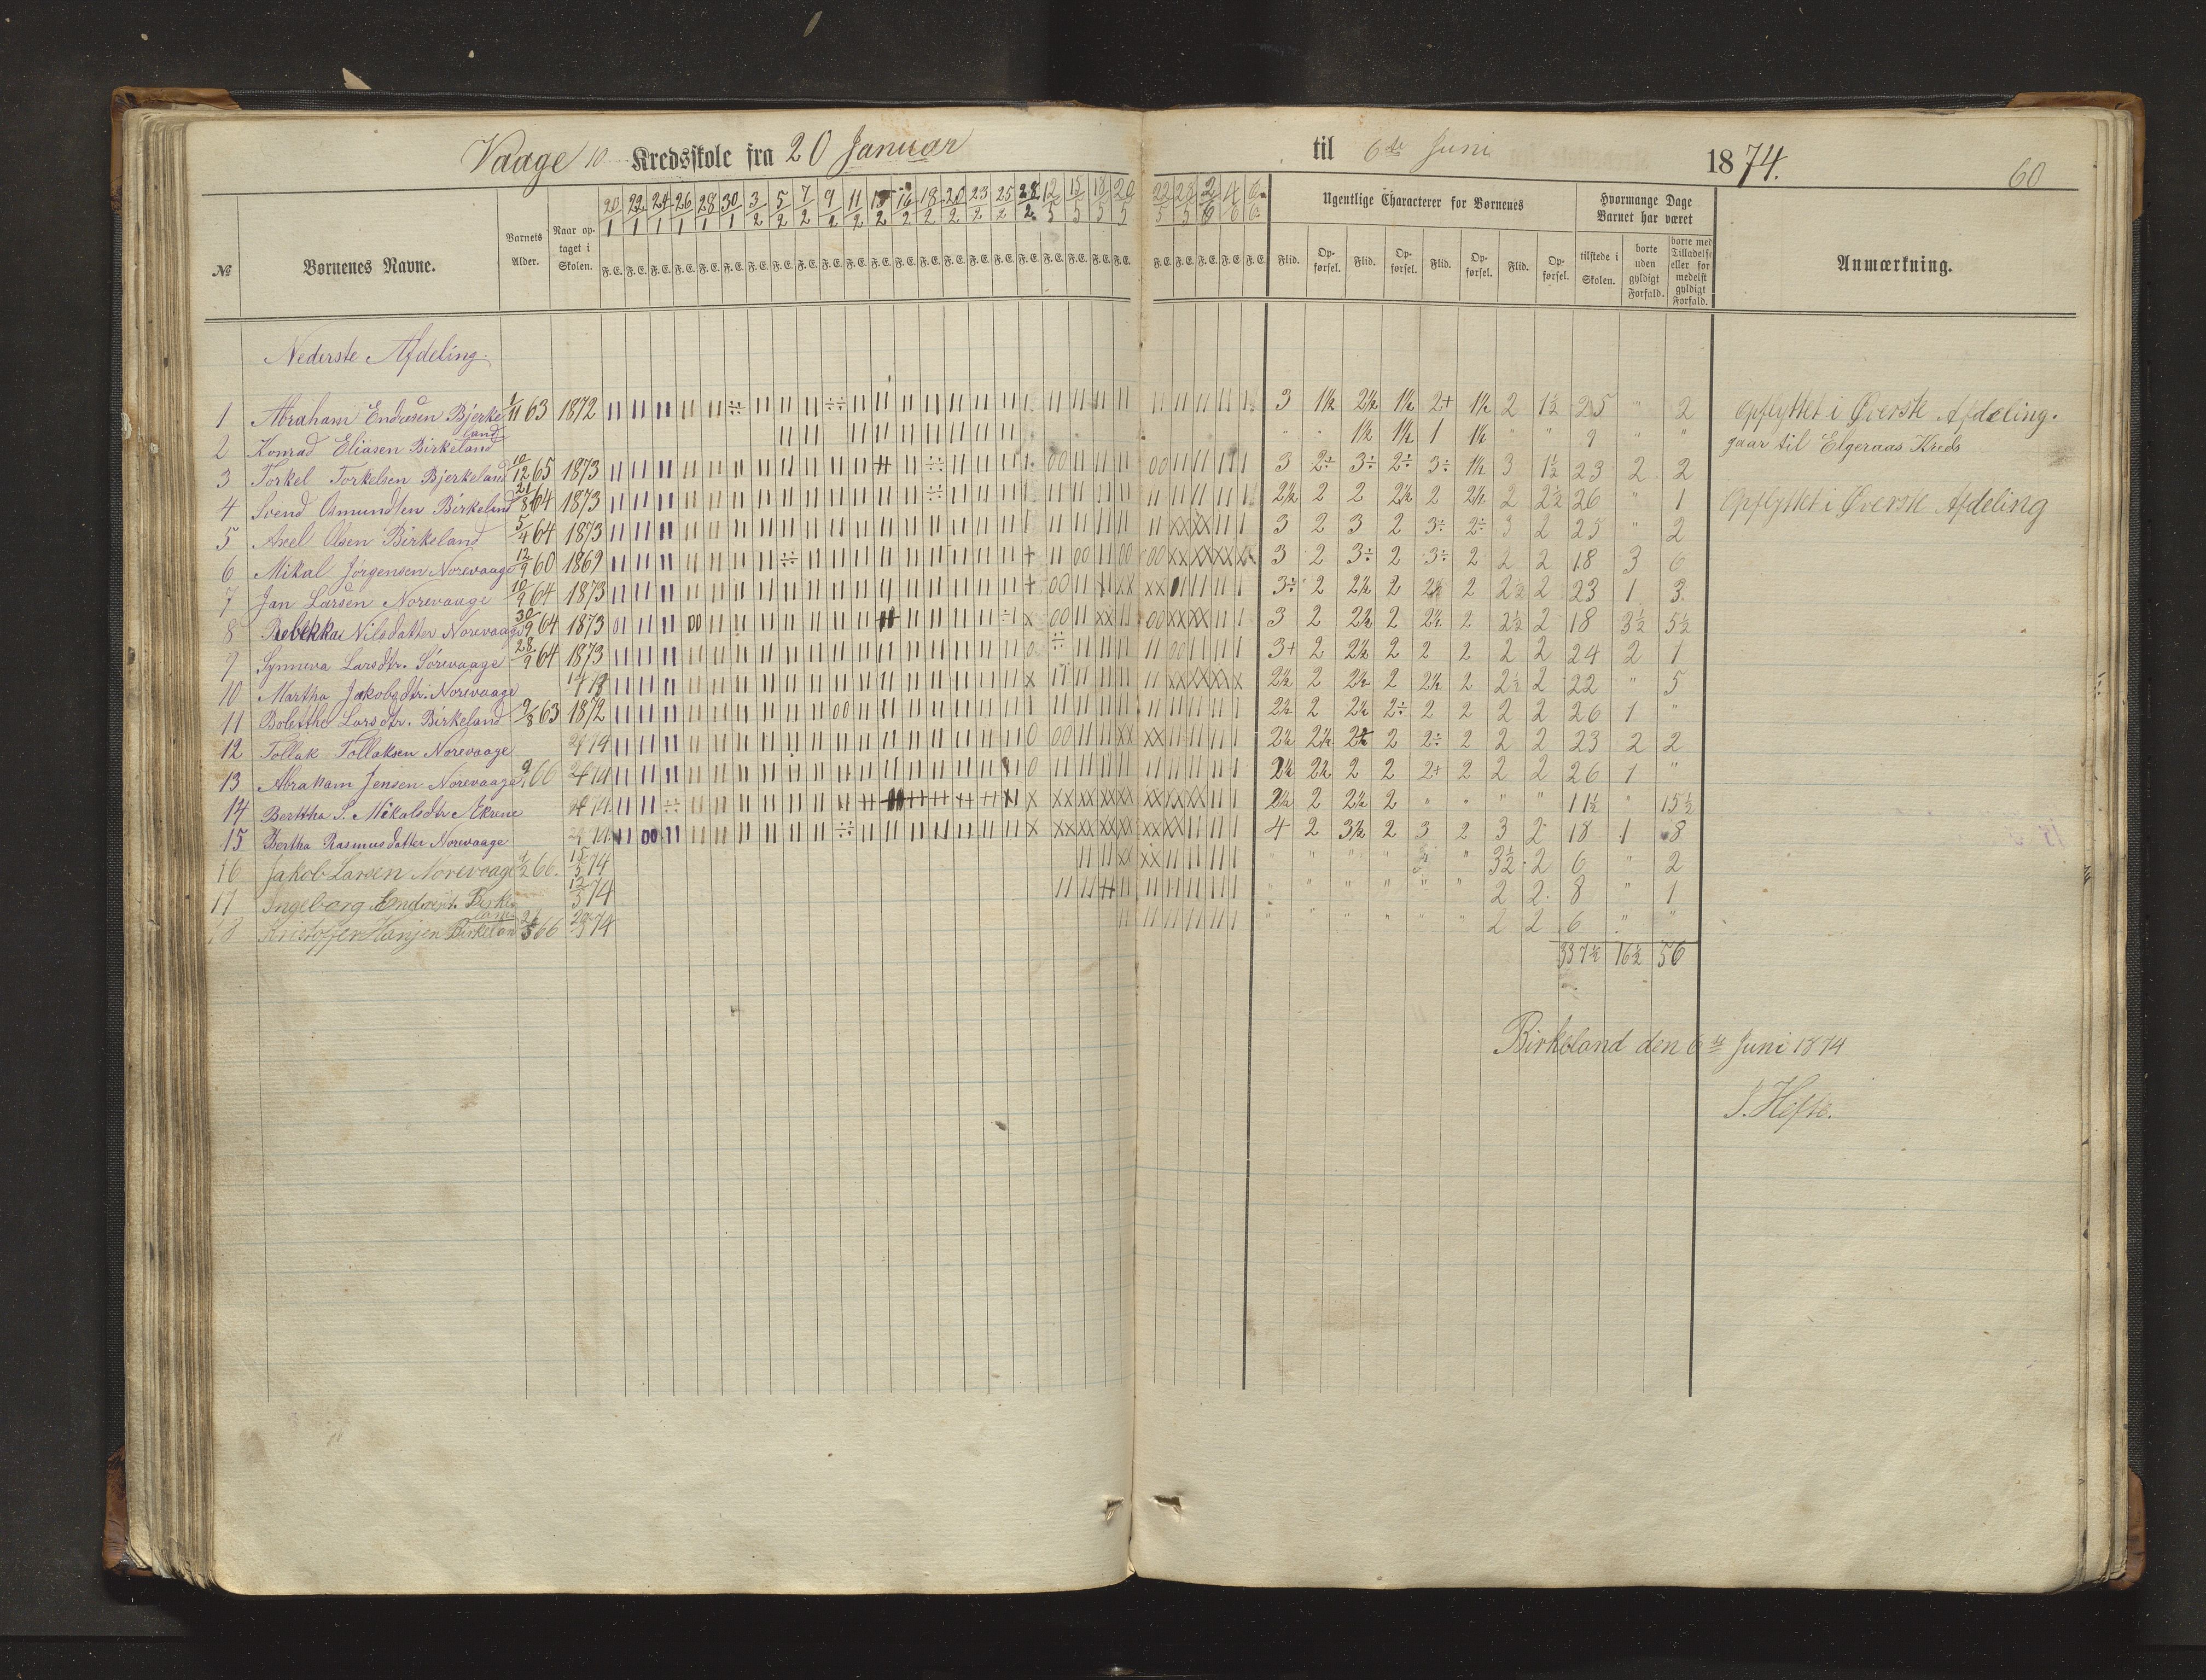 Vaage 10 Kredsskole fra 20 Januar til 6te Juni 1874. 60
20/1 22/1 24/1 26/1 28/1 30/1 3/2 5/2 7/2 9/2 11/2 13/2 16/2 18/2 20/2 23/2 25/2 28/2 12/5 15/5 18/5 20/5 22/5 28/5 2/6 4/6 6/6
№ Børnenes Navne. Barnets Alder. Naar optaget i Skolen. F.E. Ugentlige Characterer for Børnenes Hvormange Dage Barnet har været Anmærkning.
Flid. Opførsel. Flid. Opførsel. Flid. Opførsel. Flid. Opførsel. tilstede i Skolen. borte uden gyldigt Forfald. borte med Tilladelse eller for medelst gyldigt Forfald.
Nederste Afdeling.
1 Abraham Endresen Bjerkeland 1/11 63 1872 3 1½ 2½ 1½ 2+ 1½ 2 1½ 25 " 2 Opflyttet i Øverste Afdeling.
2 Konrad Eliasen Birkeland " " 1½ 1½ 1 1½ " " 9 " " gaar til Elgeraas Kreds
3 Torkel Torkelsen Bjerkeland 10/12 65 1873 3 2÷ 3÷ 2÷ 3÷ 1½ 3 1½ 23 2 2
4 Svend Osmundsen Birkeland 21/8 64 1873 2½ 2 2 2½ 2 2½ 2 2½ 26 " 1 Opflyttet i Øverste Afdeling
5 Axel Olsen Birkeland 5/4 64 1873 3 2 3 2 3÷ 2÷ 3 2 25 " 2
6 Mikal Jørgensen Norevaage 12/9 60 1869 3 2 3÷ 2 3÷ 2 2 2 18 3 6
7 Jan Larsen Norevaage 10/9 64 1873 3÷ 2 2½ 2 2½ 2 2½ 2 23 1 3
8 Rebekka Nilsdatter Norevaage 30/9 64 1873 3 2 2½ 2 2½ 2 2½ 2 18 3½ 5½
9 Synneva Larsdtr. Sørevaage 28/9 64 1873 3+ 2 2½ 2 2 2 2 2 24 2 1
10 Martha Jakobsdtr. Norevaage 2½ 2 2½ 2 2½ 2 2½ 2 22 " 5
11 Bolettha Larsdtr. Birkeland 9/8 63 1872 2½ 2 2½ 2÷ 2 2 2 2 26 1 "
12 Tollak Tollaksen Norevaage 2½ 2½ 2½ 2 2÷ 2 2 2 23 2 2
13 Abraham Jensen Norevaage 66 2½ 2½ 2 2 2+ 2 2 2 26 1 "
14 Berttha S. Mikalsdtr Ekrene 2½ 2 2½ 2 " " " " 11½ " 15½
15 Bertha Rasmusdatter Norevaage 4 2 3½ 2 3 2 3 2 18 1 8
16 Jakob Larsen Norevaage 1/2 66. 15/5 74 " " " " " " 3½ 2 6 " 2
17 Ingeborg Endresdt. Birkeland 12/5 74 " " " " " " 2 2. 8 " 1
18 Kristoffer Hansen Birkeland 66 20/5 74 " " " " " " 2 2 6 " "
337½ 16½ 56
Birkeland den 6te Juni 1874